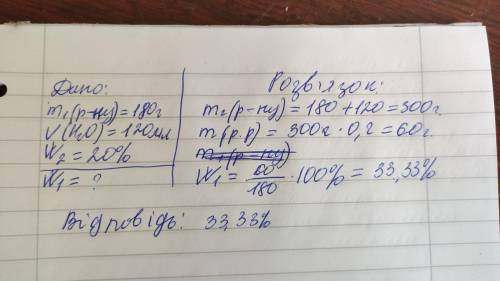 Дано:
m₁(р-ну)=180г
V(H₂O)=120мл
W₂=20%
W₁=?
Розв'язок:
m₂(р-ну)=180+120=300г.
m(р.р)=300г·0,2=60г
m₁(р-ну)
W₁=60/180·100%=33,33%
Відповідь: 33,33%